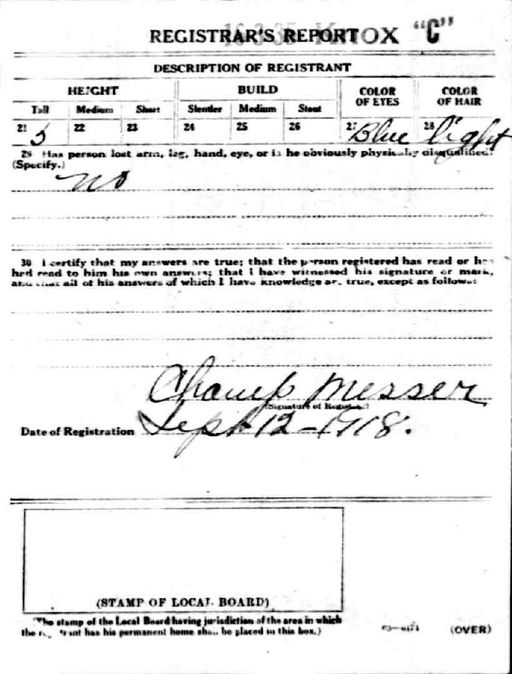 REGISTRAR'S REPORT 16-3-35 KNOX "C"
DESCRIPTION OF REGISTRANT
HEIGHT BUILD COLOR OF EYES COLOR OF HAIR
Tall Medium Short Slender Medium Stout
21 5 22 23 24 25 26 27 Blue 28 light
29 Has person lost arm, leg, hand, eye, or is he obviously physically disqualified?
(Specify.) no
30 I certify that my answers are true; that the person registered has read or has
had read to him his own answers; that I have witnessed his signature or mark,
and that all of his answers of which I have knowledge are true, except as follows:
Champ Messer
(Signature of Registrar)
Date of Registration Sept 12-1918.
(STAMP OF LOCAL BOARD)
(The stamp of the Local Board having jurisdiction of the area in which
the registrant has his permanent home shall be placed in this box.)
(OVER)